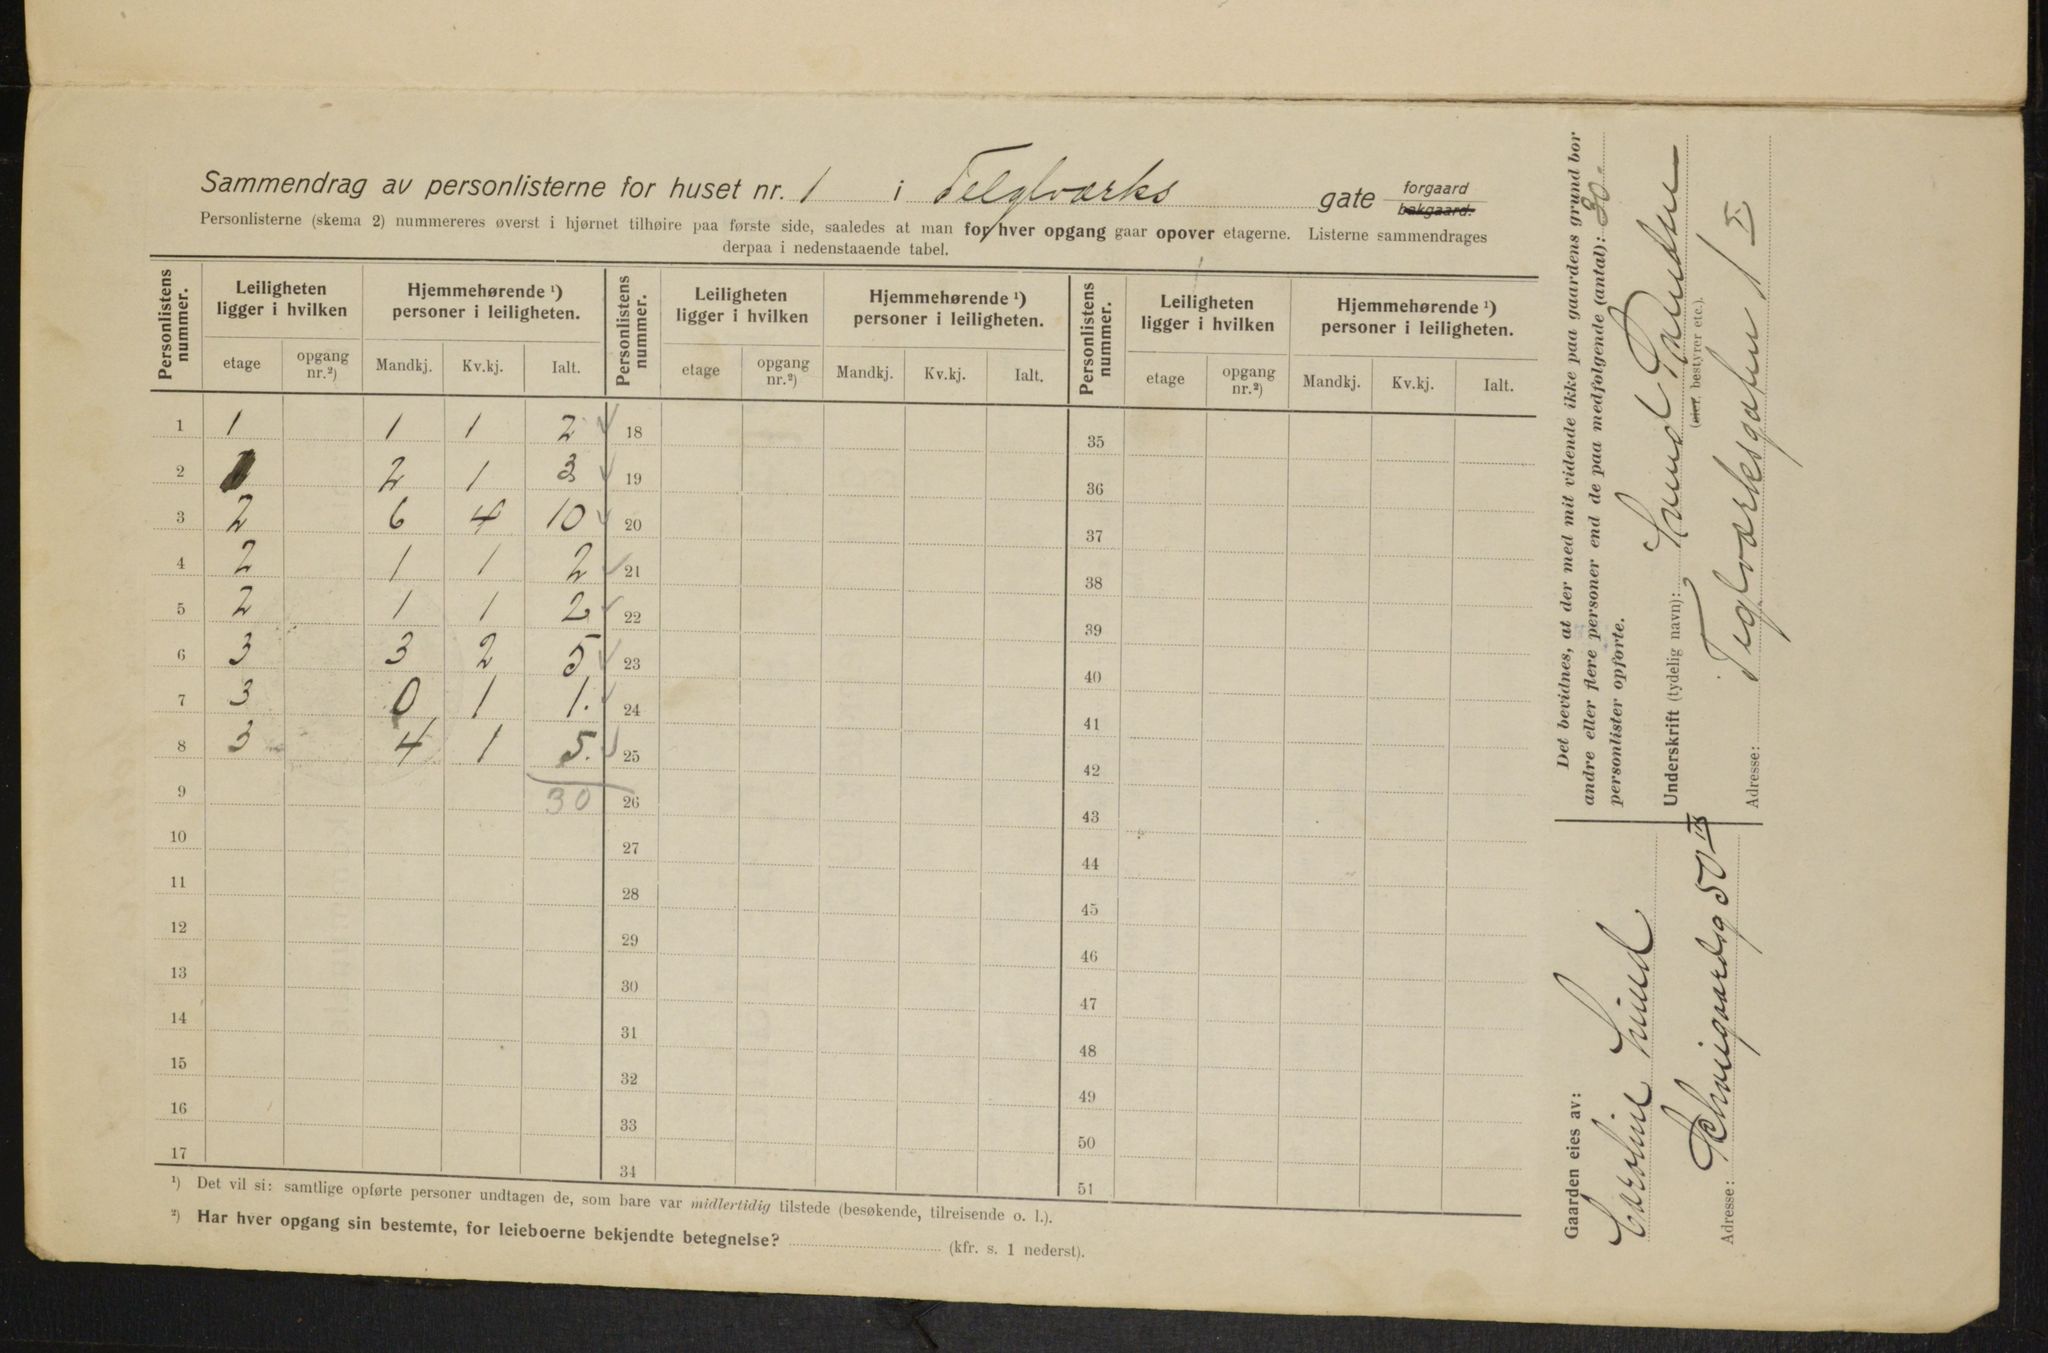 Sammendrag av personlisterne for huset nr. 1 i Teglværks gate forgaard bakgaard.
Personlisterne (skema 2) nummereres øverst i hjørnet tilhøire paa første side, saaledes at man for hver opgang gaar opover etagerne. Listerne sammendrages
derpaa i nedenstaaende tabel.
Personlistens nummer. Leiligheten ligger i hvilken Hjemmehørende ¹) personer i leiligheten. Personlistens nummer. Leiligheten ligger i hvilken Hjemmehørende ¹) personer i leiligheten. Personlistens nummer. Leiligheten ligger i hvilken Hjemmehørende ¹) personer i leiligheten.
etage opgang nr.²) Mandkj. Kv.kj. Ialt. etage opgang nr.²) Mandkj. Kv.kj. Ialt. etage opgang nr.²) Mandkj. Kv.kj. Ialt.
1 1 1 1 2 18 35
2 2 1 3 19 36
3 2 6 4 10 20 37
4 2 1 1 2 21 38
5 2 1 1 2 22 39
6 3 3 2 5 23 40
7 3 0 1 1. 24 41
8 3 4 1 5. 25 42
9 30 26 43
10 27 44
11 28 45
12 29 46
13 30 47
14 31 48
15 32 49
16 33 50
17 34 51
¹) Det vil si: samtlige opførte personer undtagen de, som bare var midlertidig tilstede (besøkende, tilreisende o. l.).
²) Har hver opgang sin bestemte, for leieboerne bekjendte betegnelse? (kfr. s. 1 nederst).
Det bevidnes, at der med mit vidende ikke paa gaardens grund bor
andre eller flere personer end de paa medfølgende (antal): 30.
personlister opførte.
Underskrift (tydelig navn): Knud
(eier, bestyrer etc.).
Adresse: Teglværksgaten 1 I
Gaarden eies av:
Caroline Lund
Adresse: Schweigaardsg 50 III